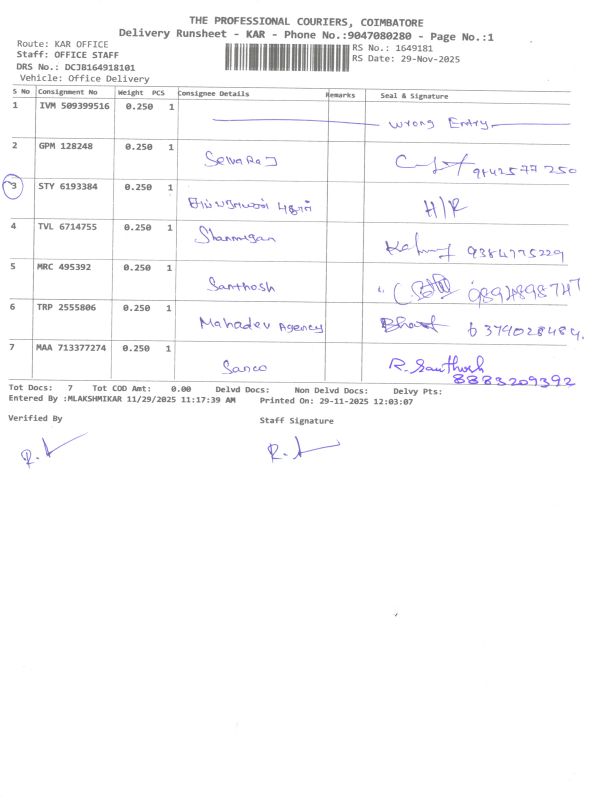 THE PROFESSIONAL COURIERS, COIMBATORE
Delivery Runsheet - KAR - Phone No.:9047080280 - Page No.:1
Route: KAR OFFICE
Staff: OFFICE STAFF
DRS No.: DCJB164918101
Vehicle: Office Delivery
RS No.: 1649181
RS Date: 29-Nov-2025
S No Consignment No Weight PCS Consignee Details Remarks Seal & Signature
1 IVM 509399516 0.250 1 Wrong Entry
2 GPM 128248 0.250 1 Selvaraj 9442577250
3 STY 6193384 0.250 1 H/R
4 TVL 6714755 0.250 1 Shanmugan 9384775229
5 MRC 495392 0.250 1 Santhosh 9894898747
6 TRP 2555806 0.250 1 Mahadev Agency Bharat 6374028484.
7 MAA 713377274 0.250 1 Sanco R. Santhosh
8883209392
Tot Docs: 7 Tot COD Amt: 0.00 Delvd Docs: Non Delvd Docs: Delvy Pts:
Entered By :MLAKSHMIKAR 11/29/2025 11:17:39 AM Printed On: 29-11-2025 12:03:07
Verified By Staff Signature